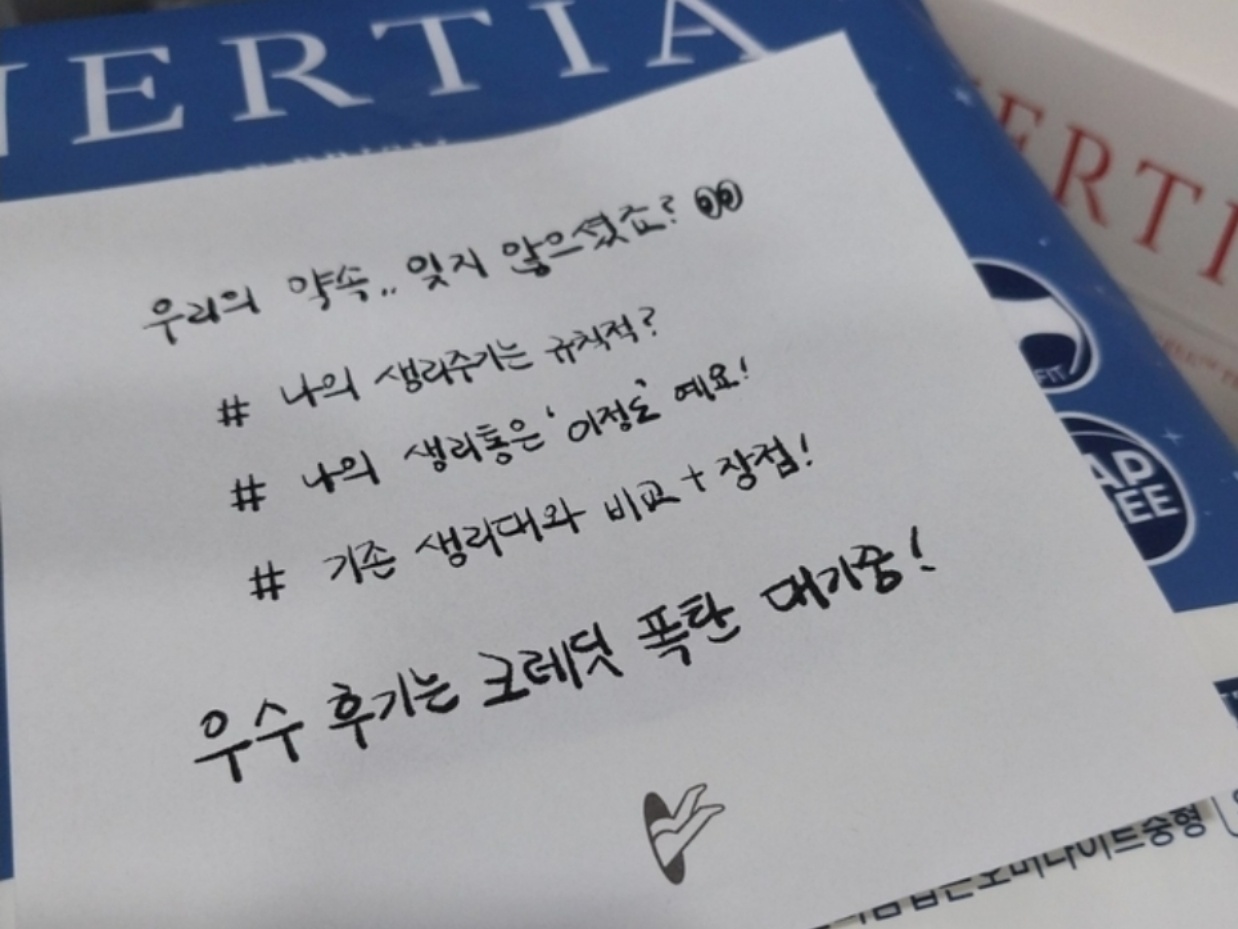 NERTIA
ERTI
우리의 약속.. 잊지 않으셨죠?
# 나의 생리주기는 규칙적?
# 나의 생리통은 '이정도' 예요!
# 기존 생리대와 비교 + 장점!
우수 후기는 크레딧 폭탄 대기중!
FIT
AP
EE
오버나이트숭형